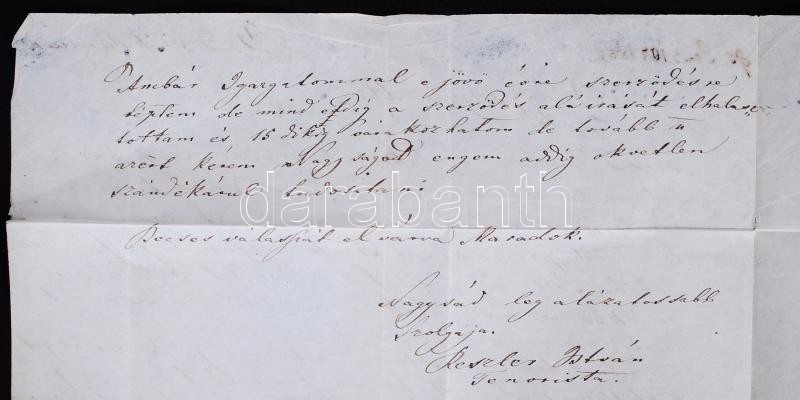 Ambár Igazgatommal e jövö évre szerzödésre
léptem de mind eddig a szerzödés aláirását elhalasz=
tottam és 15 dikig várakozhatom de tovább n
azért kérem Nagyságod engem addig okvetlen
szándékárul tudositani
darabanth
Becses válaszát el várva Maradok.
Nagysád leg alázatossabb
Szolgája.
Reszler István
Tenorista.